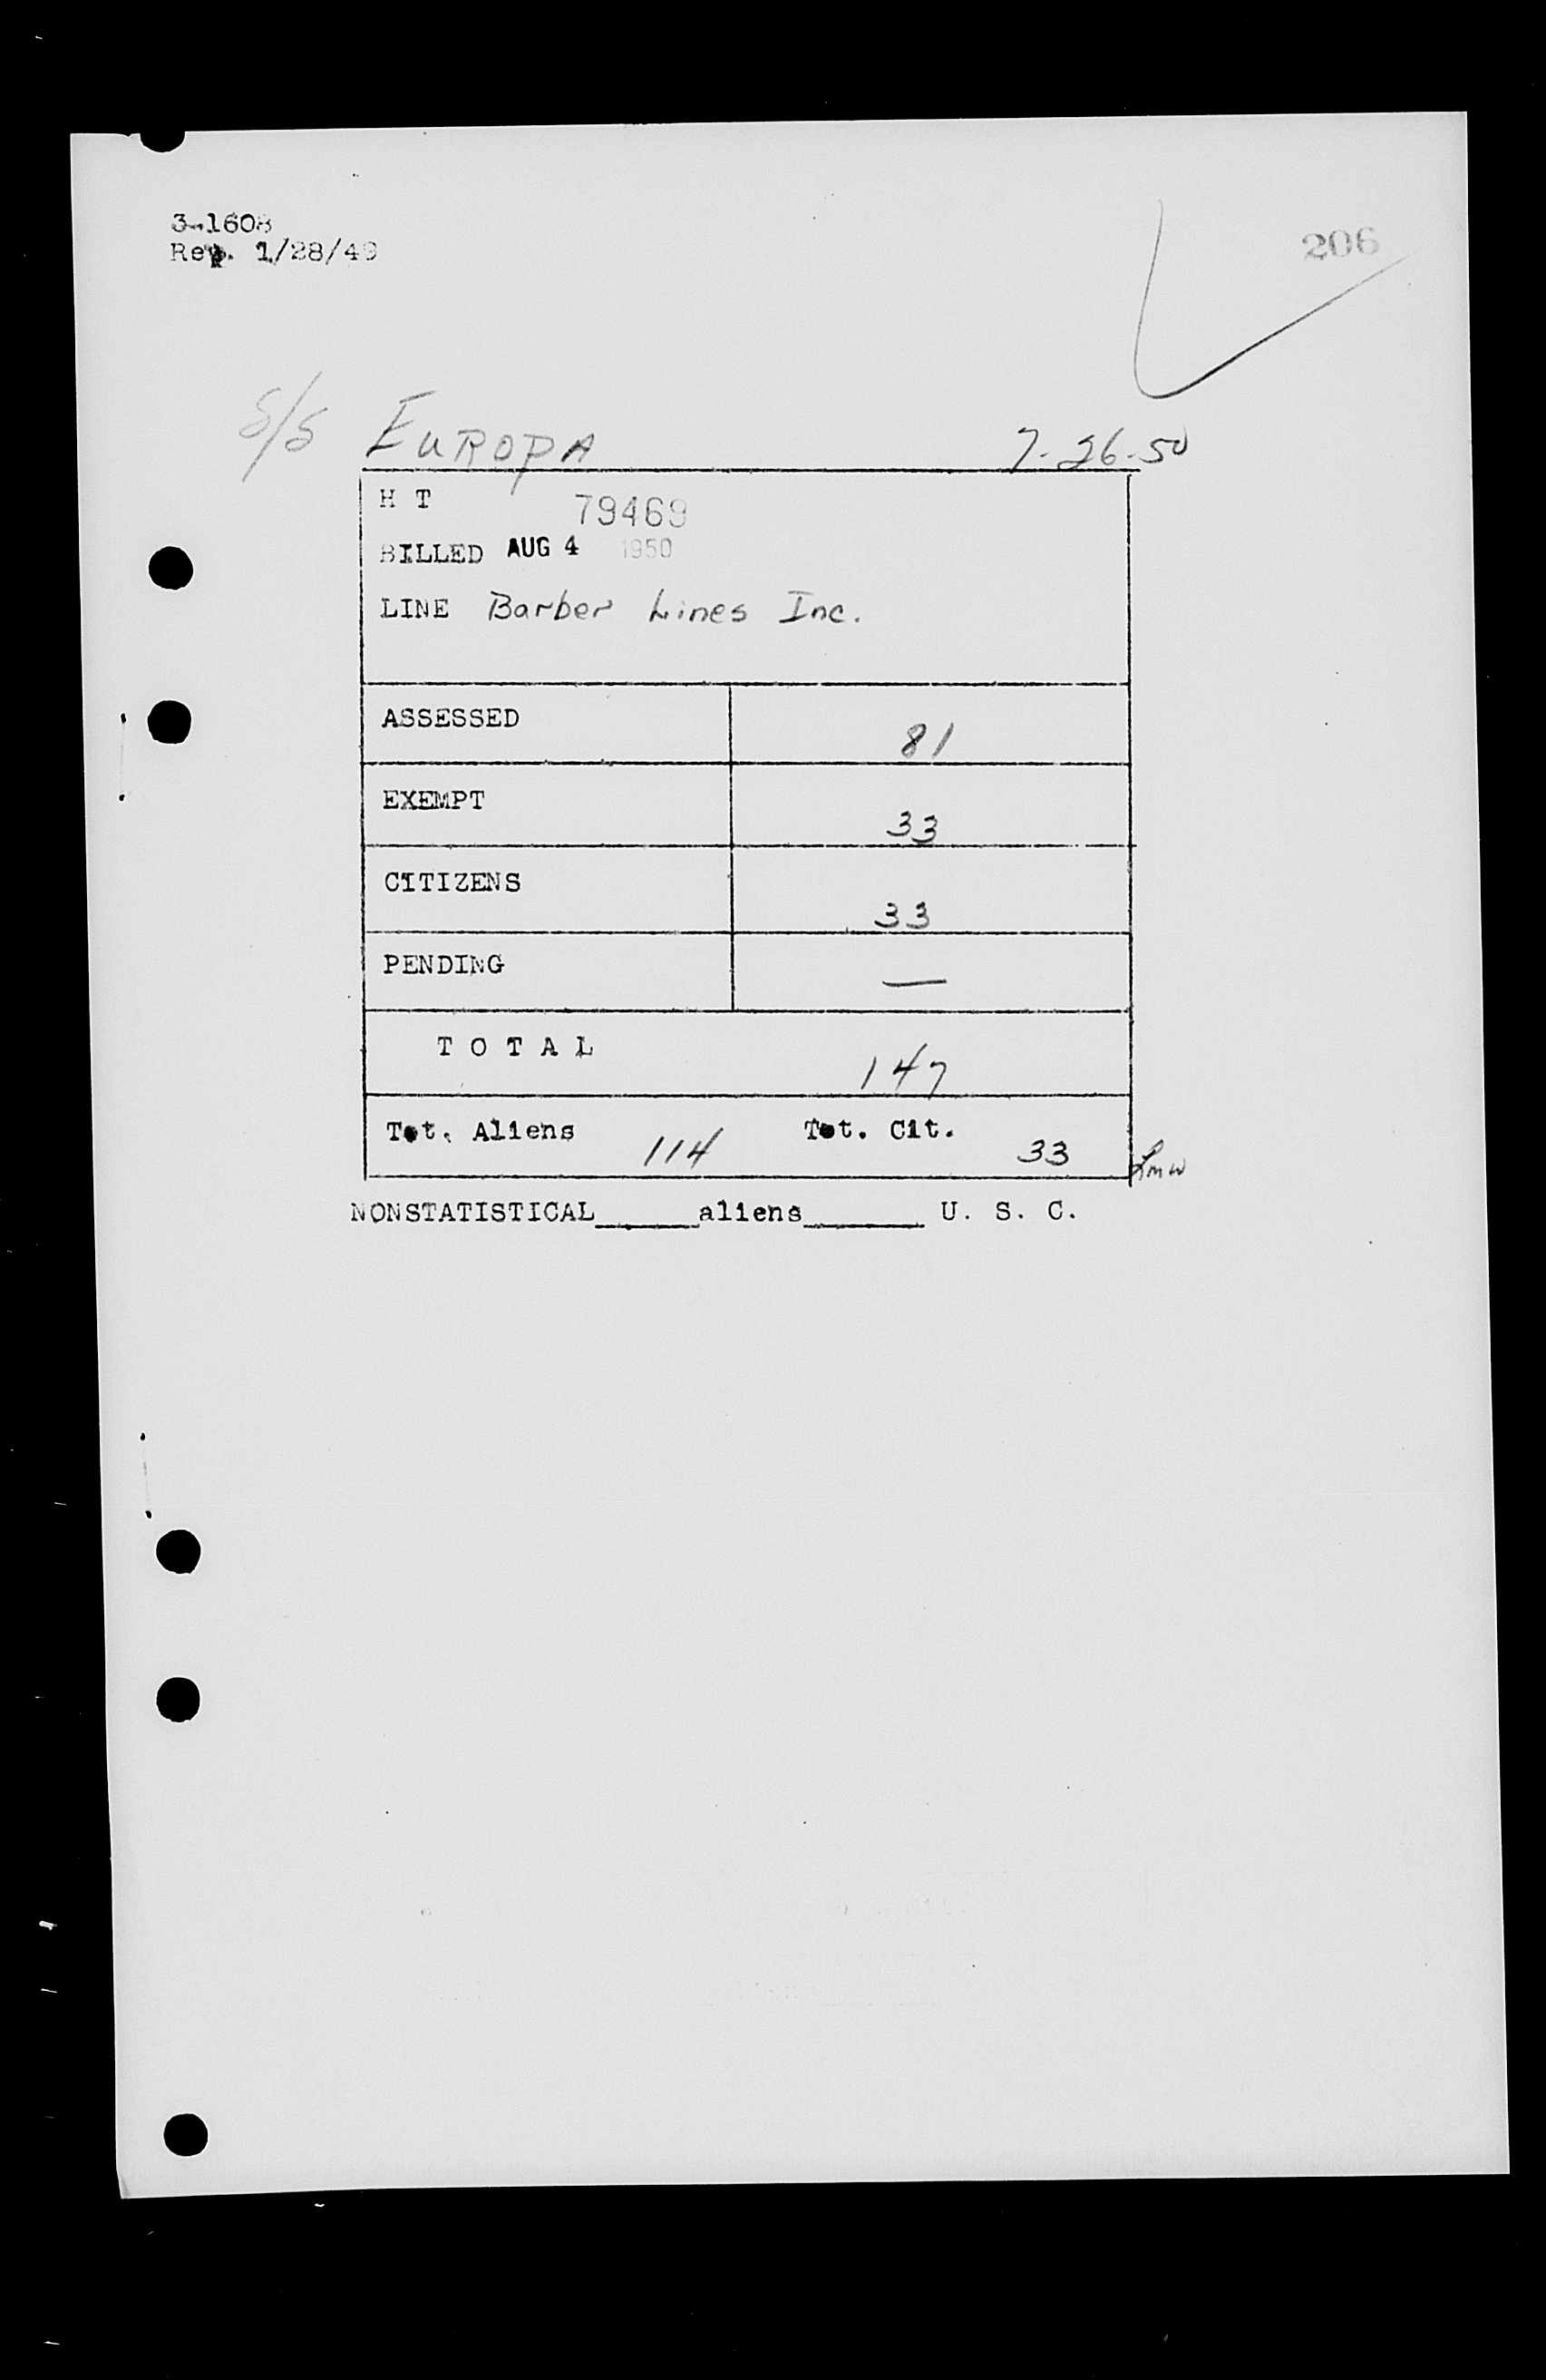 3-1608
Rev. 1/28/49
206
S/S EUROPA 7-26-50
H T 79469
BILLED AUG 4 1950
LINE Barber Lines Inc.
ASSESSED 81
EXEMPT 33
CITIZENS 33
PENDING —
T O T A L 147
Tot. Aliens 114 Tot. Cit. 33 Lmw
NONSTATISTICAL______aliens_______ U. S. C.